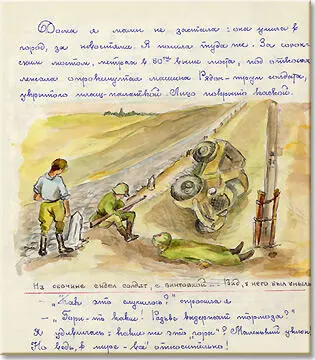 Дома я мамы не застала: она ушла в
город, за новостями. Я пошла туда же. За сорок-
ским мостом, метрах в 50ти ниже моста, под откосом
лежала опрокинутая машина. Рядом - труп солдата,
укрытого плащ-палаткой. Лицо покрыто каской.
На обочине сидел солдат, с винтовкой. Вид у него был унылый
— "Как это случилось?" спросила я
— "Гора-то какая! Разве выдержат тормоза?"
Я удивилась: какая же это "гора"? Маленький уклон.
Но ведь, в мире - всё относительно!